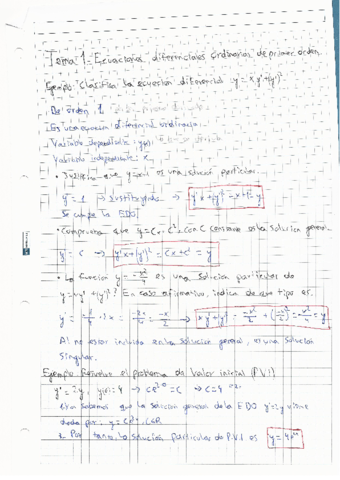 Tema 1 - Ecuaciones diferenciales ordinarias de primer orden
Ejemplo: Clasifica la ecuación diferencial y = xy' + (y')²
De orden 1
Es una ecuación diferencial ordinaria
Variable dependiente: y
Variable independiente: x
que y = es una solución particular.
y' = 1 → sustituyendo → y'x + (y')² = x + 1 = y
Se cumple la EDO
• Comprueba que y = Cx + C² con C constante es la solución general.
y' = C → y'x + (y')² = Cx + C² = y
• La función y = -x²/4 es una solución particular de
y = xy' + (y')²? En caso afirmativo, indica de que tipo es.
y' = -1/4 · 2x = -2x/4 = -x/2 → xy' + (y')² = -x²/2 + (-x/2)² = -x²/4 = y
Al no estar incluida en la solución general, es una solución
singular.
Ejemplo: Resuelve el problema de valor inicial (P.V.I)
y' = 2y, y(0) = 4 → C = 4
que la solución general de la EDO y' = 2y viene
dada por: y = Ce²ˣ, C∈R.
Por tanto, la solución particular de P.V.I es y = 4e²ˣ